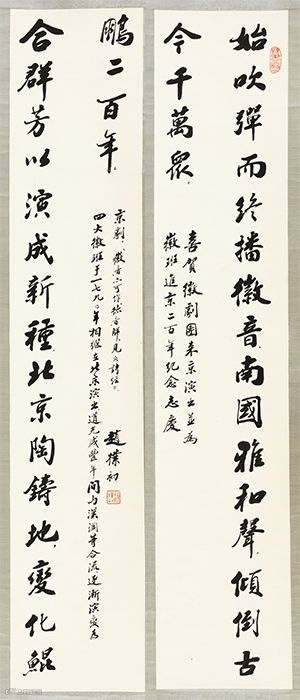 始吹彈而終播徽音南國雅和聲傾倒古
今千萬衆
喜賀徽劇團来京演出並為
徽班進京二百年紀念志慶
合群芳以演成新種北京陶鑄地變化鯤
鵬二百年
四大徽班于一七九〇年相繼在北京演出道光咸豐年間与漢調等合流逐漸演變為
京劇。徽音亦可作德音解見詩經。
趙樸初